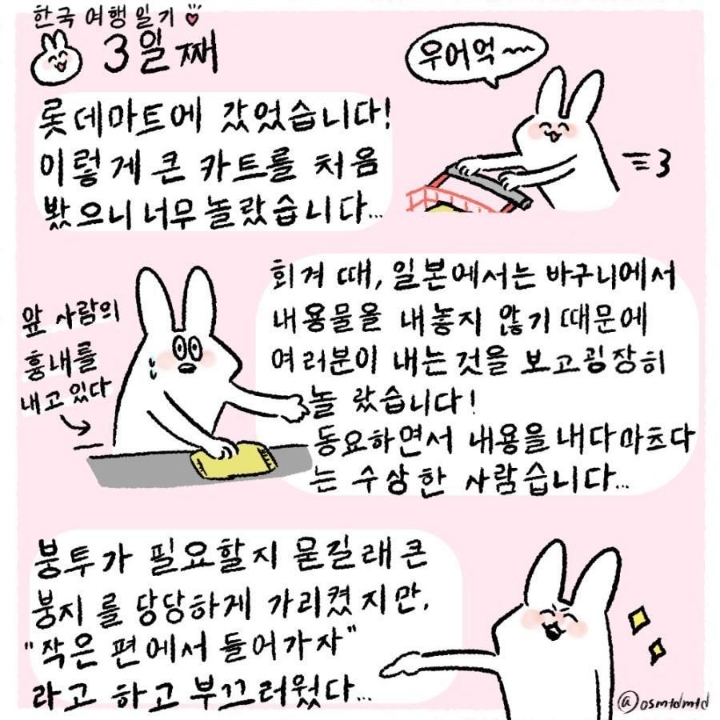 한국 여행 일기
3일째
우어억~~
롯데마트에 갔었습니다!
이렇게 큰 카트를 처음
봤으니 너무 놀랐습니다...
회겨 때, 일본에서는 바구니에서
내용물을 내놓지 않기 때문에
여러분이 내는 것을 보고 굉장히
놀 랐습니다!
동요하면서 내용을 내다마츠다
는 수상한 사람습니다...
앞 사람의
흉내를
내고 있다
붕투가 필요할지 묻길래 큰
붕지를 당당하게 가리켰지만,
"작은 편에서 들어가자"
라고 하고 부끄러웠다...
@osmtdmtd